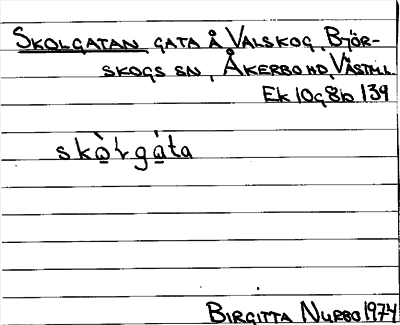 SKOLGATAN, GATA Å VALSKOG, BJÖR-
SKOGS SN, ÅKERBO HD, VÄSTML.
EK 10g8b 139
skò̱lgà̱ta
BIRGITTA NURBO 1974